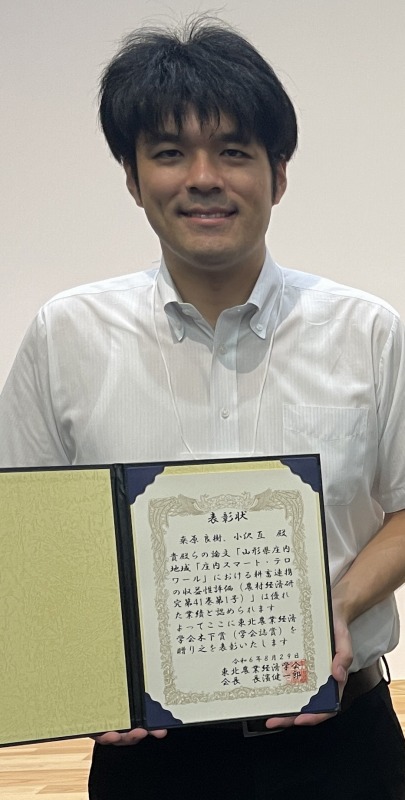 表彰状
桑原良樹、小沢亙 殿
貴殿らの論文「山形県庄内
地域「庄内スマート・テロ
ワール」における耕畜連携
の収益性評価（農村経済研
究第41巻第1号）」は優れ
た業績と認められます
よってここに東北農業経済
学会木下賞（学会誌賞）を
贈り之を表彰いたします
令和6年8月29日
東北農業経済学会
会長 長濱健一郎